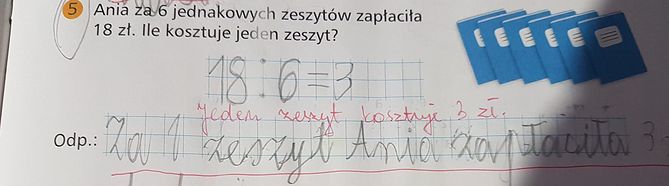 5 Ania za 6 jednakowych zeszytów zapłaciła
18 zł. Ile kosztuje jeden zeszyt?
18:6=3
jeden zeszyt kosztuje 3 zł.
Odp.: Za 1 zeszyt Ania zapłaciła 3